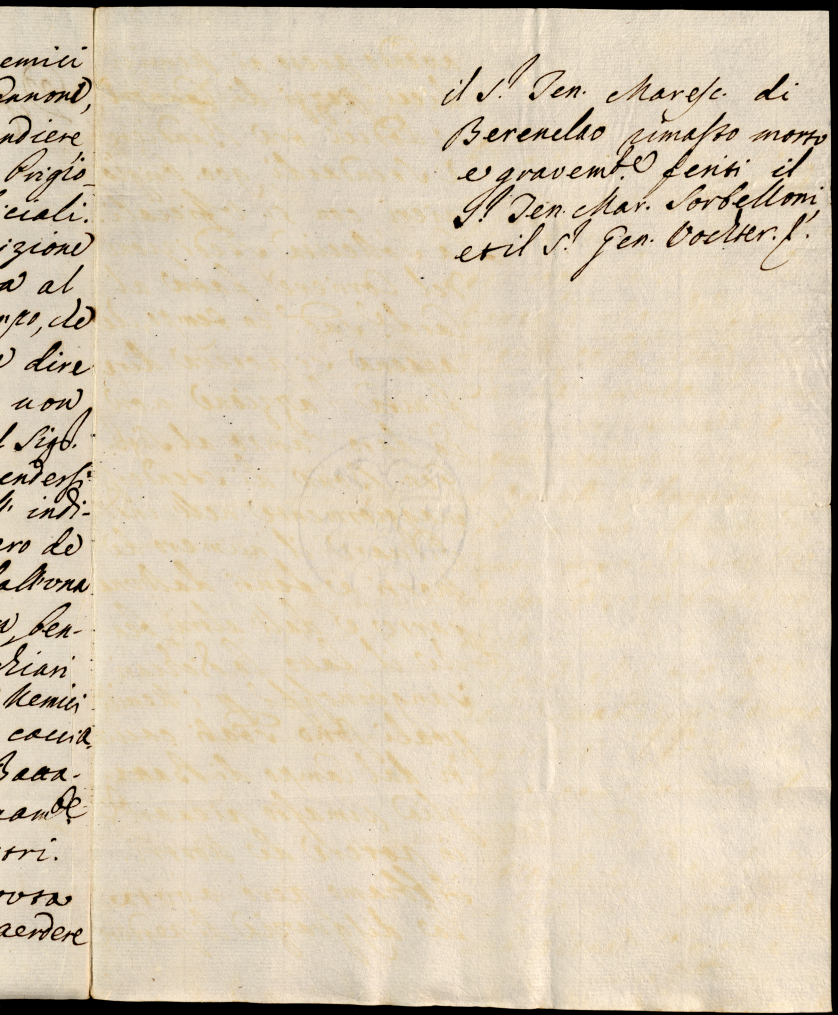 emici
annone,
ndiere
Prigio-
iciali.
izione
a al
mpo, de
e dire
non
l Sigr.
enderssi
l' indi-
ero de
alluna
a, ben-
hiari
Nemici
caccia-
Batta-
namte
stri.
aerdere
il Sr Ten. Maresc. di
Berenclao rimasto morto
e gravemte feriti il
Sr Ten. Mar. Sorbelloni
et il Sr Gen. Voehter. f.